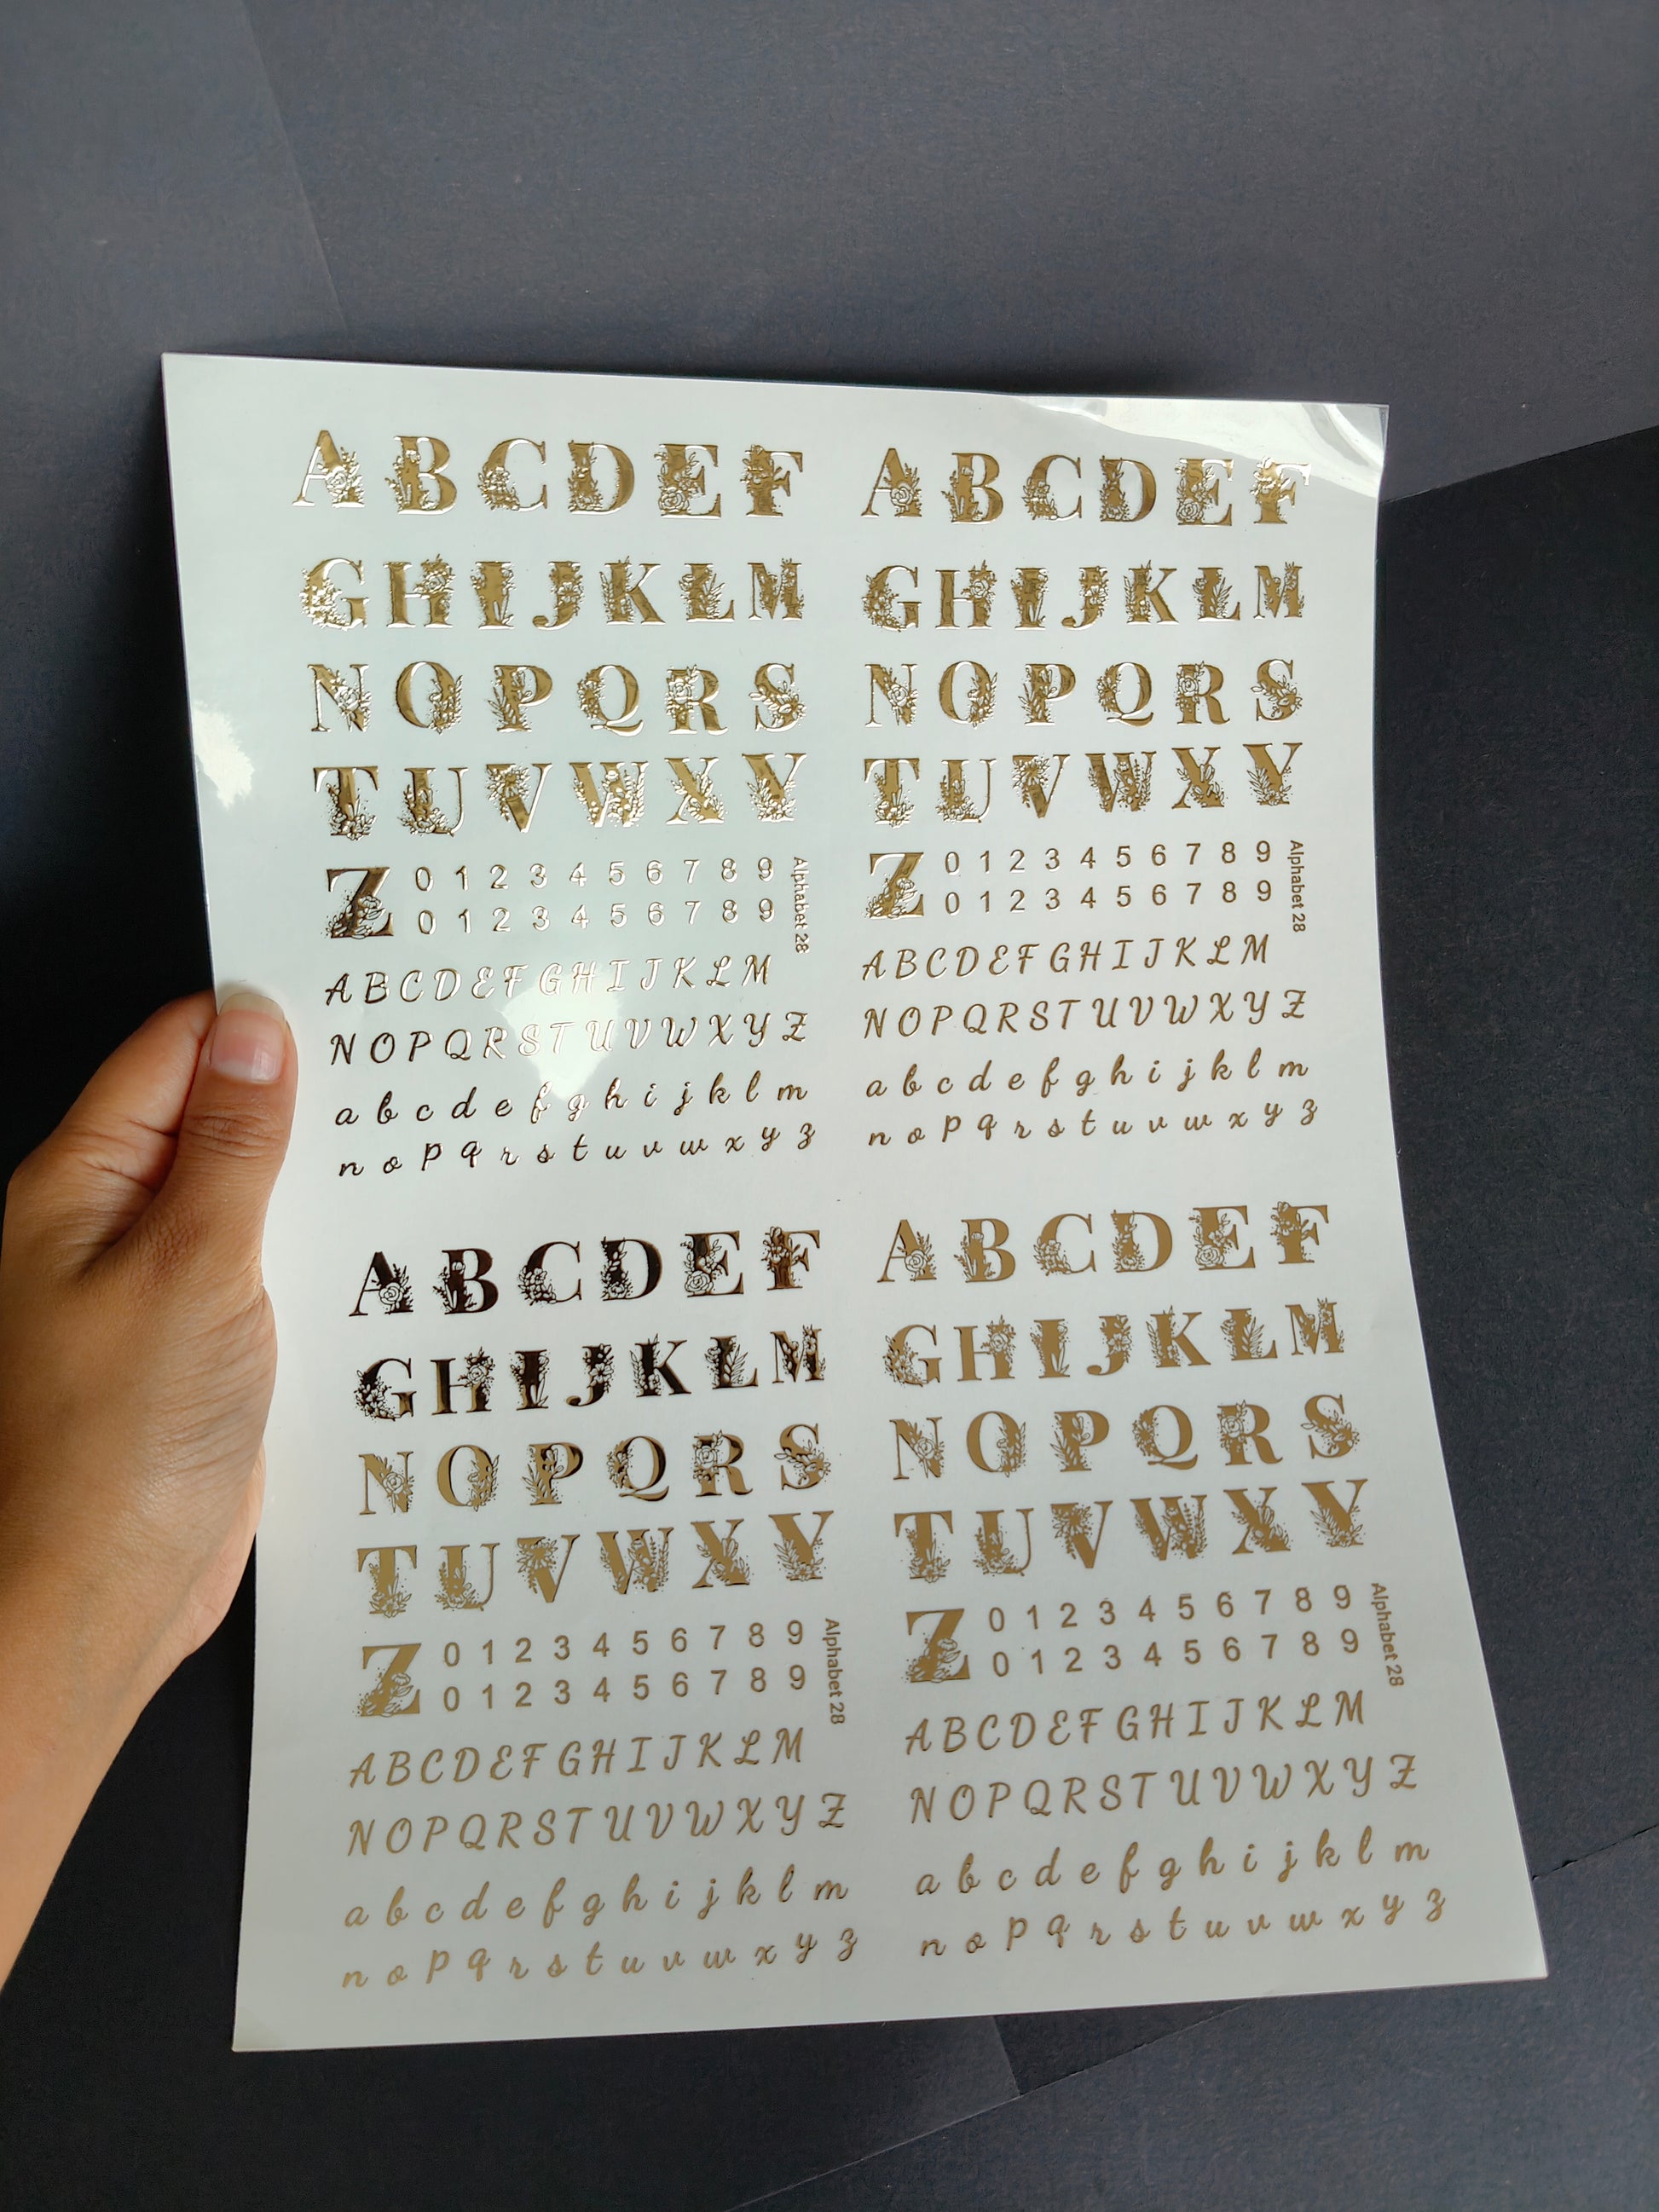 A B C D E F
G H I J K L M
N O P Q R S
T U V W X Y
Z 0 1 2 3 4 5 6 7 8 9
0 1 2 3 4 5 6 7 8 9
Alphabet 28
A B C D E F G H I J K L M
N O P Q R S T U V W X Y Z
a b c d e f g h i j k l m
n o p q r s t u v w x y z
A B C D E F
G H I J K L M
N O P Q R S
T U V W X Y
Z 0 1 2 3 4 5 6 7 8 9
0 1 2 3 4 5 6 7 8 9
Alphabet 28
A B C D E F G H I J K L M
N O P Q R S T U V W X Y Z
a b c d e f g h i j k l m
n o p q r s t u v w x y z
A B C D E F
G H I J K L M
N O P Q R S
T U V W X Y
Z 0 1 2 3 4 5 6 7 8 9
0 1 2 3 4 5 6 7 8 9
Alphabet 28
A B C D E F G H I J K L M
N O P Q R S T U V W X Y Z
a b c d e f g h i j k l m
n o p q r s t u v w x y z
A B C D E F
G H I J K L M
N O P Q R S
T U V W X Y
Z 0 1 2 3 4 5 6 7 8 9
0 1 2 3 4 5 6 7 8 9
Alphabet 28
A B C D E F G H I J K L M
N O P Q R S T U V W X Y Z
a b c d e f g h i j k l m
n o p q r s t u v w x y z